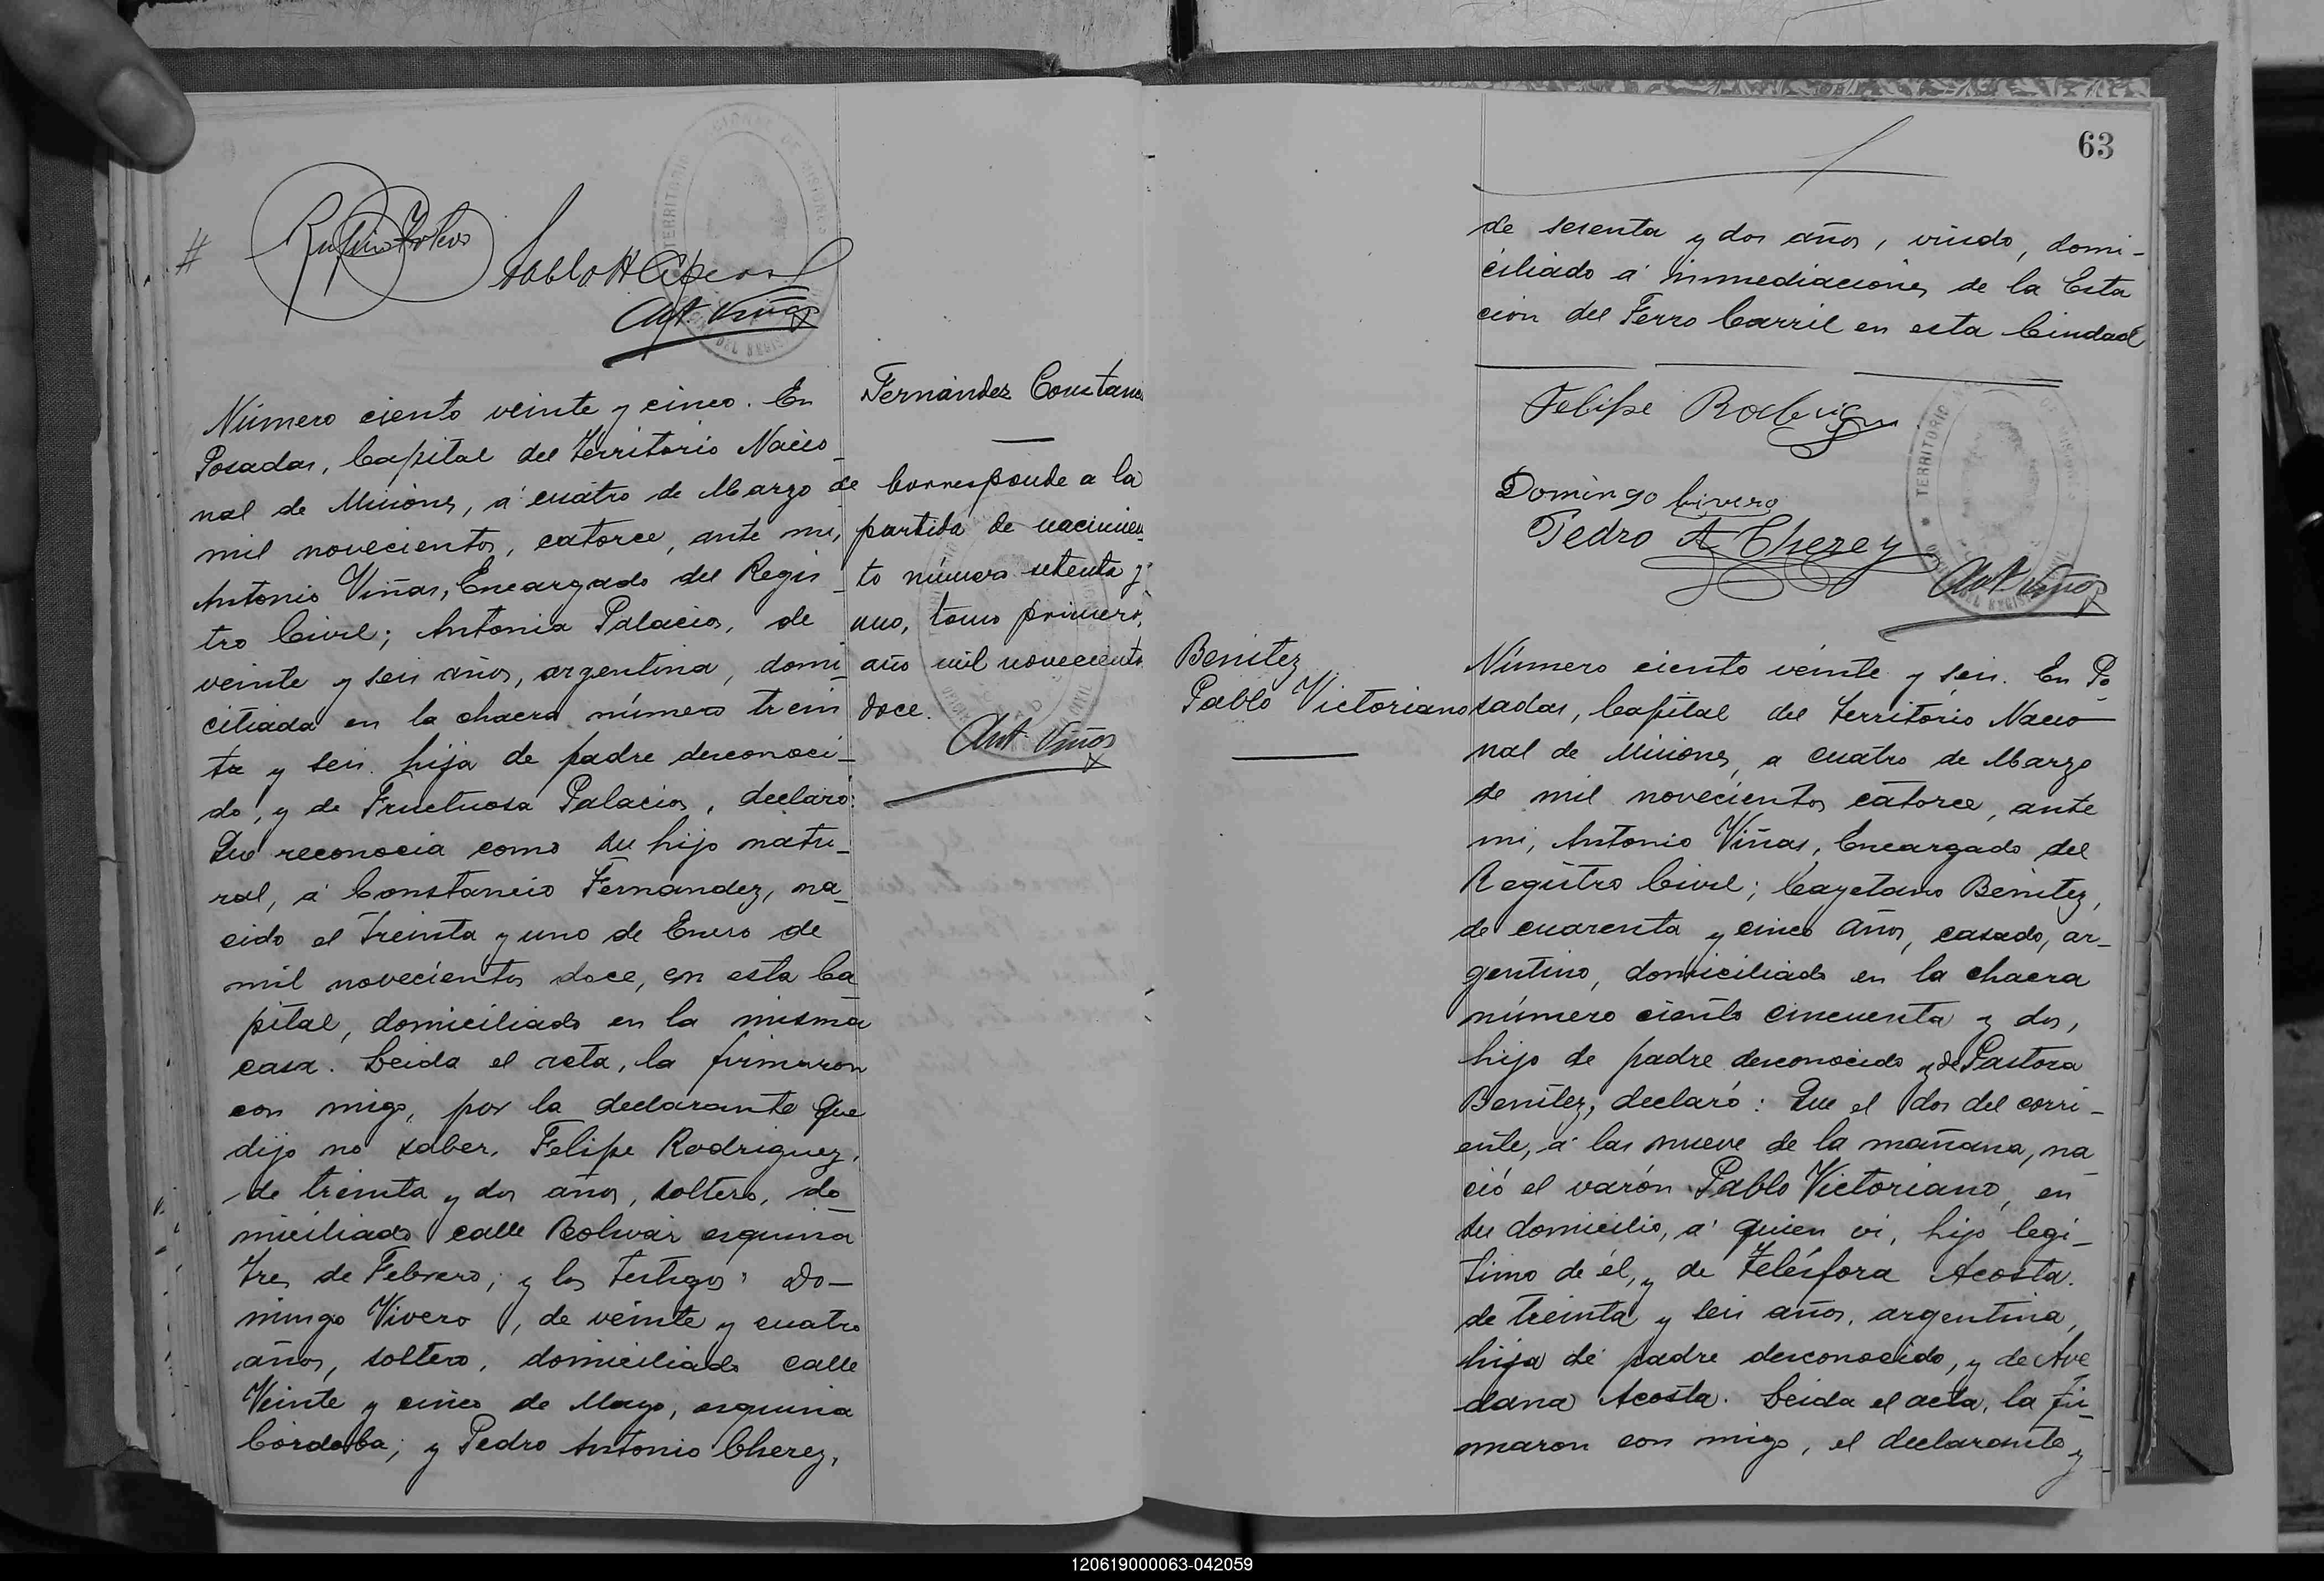 Pablo H
Ant. Viñas
Número ciento veinte y cinco. En
Posadas, Capital del Territorio Nacio-
nal de Misiones, á cuatro de Marzo de
mil novecientos, catorce, ante mi,
Antonio Viñas, Encargado del Regis-
tro Civil; Antonia Palacios, de
veinte y seis años, argentina, domi-
ciliada en la chacra número trein
ta y seis. hija de padre desconoci-
do, y de Fructuosa Palacios, declaró:
Que reconocia como su hijo natu-
ral, á Constancio Fernandez, na-
cido el treinta y uno de Enero de
mil novecientos doce, en esta Ca
pital, domiciliado en la misma
casa. Leida el acta, la firmaron
con migo, por la declarante que
dijo no saber, Felipe Rodriguez,
de treinta y dos años, soltero, do-
miciliado calle Bolivar esquina
tres de Febrero; y los testigos: Do-
mingo Vivero, de veinte y cuatro
años, soltero, domiciliado calle
Veinte y cinco de Mayo, esquina
Córdoba; y Pedro Antonio Cherey,
Fernández Constan
Corresponde a la
partida de nacimien
to número setenta y
uno, tomo primero,
año mil novecientos
doce.
Ant. Viñas
63
de sesenta y dos años, viudo, domi-
ciliado á inmediaciones de la Esta
cion del Ferro Carril en esta Ciudad
Felipe Rodrigu
Domingo Civero
Pedro A Cherey
Ant. Viñas
Benitez
Pablo Victoriano
Número ciento veinte y seis. En Po-
sadas, Capital del territorio Nacio
nal de Misiones, a cuatro de Marzo
de mil novecientos catorce, ante
mi, Antonio Viñas, Encargado del
Registro Civil; Cayetano Benitez,
de cuarenta y cinco años, casado, ar-
gentino, domiciliado en la chacra
número ciento cincuenta y dos,
hijo de padre desconocido y de Pastora
Benitez, declaró: Que el dos del corri-
ente, á las nueve de la mañana, na
ció el varón Pablo Victoriano, en
su domicilio, á quien vi, hijo legi-
timo de él, y de Telésfora Acosta.
de treinta y seis años, argentina,
hija de padre desconocido, y de Ave
dana Acosta. Leida el acta, la fir-
maron con migo, el declarante y
120619000063-042059